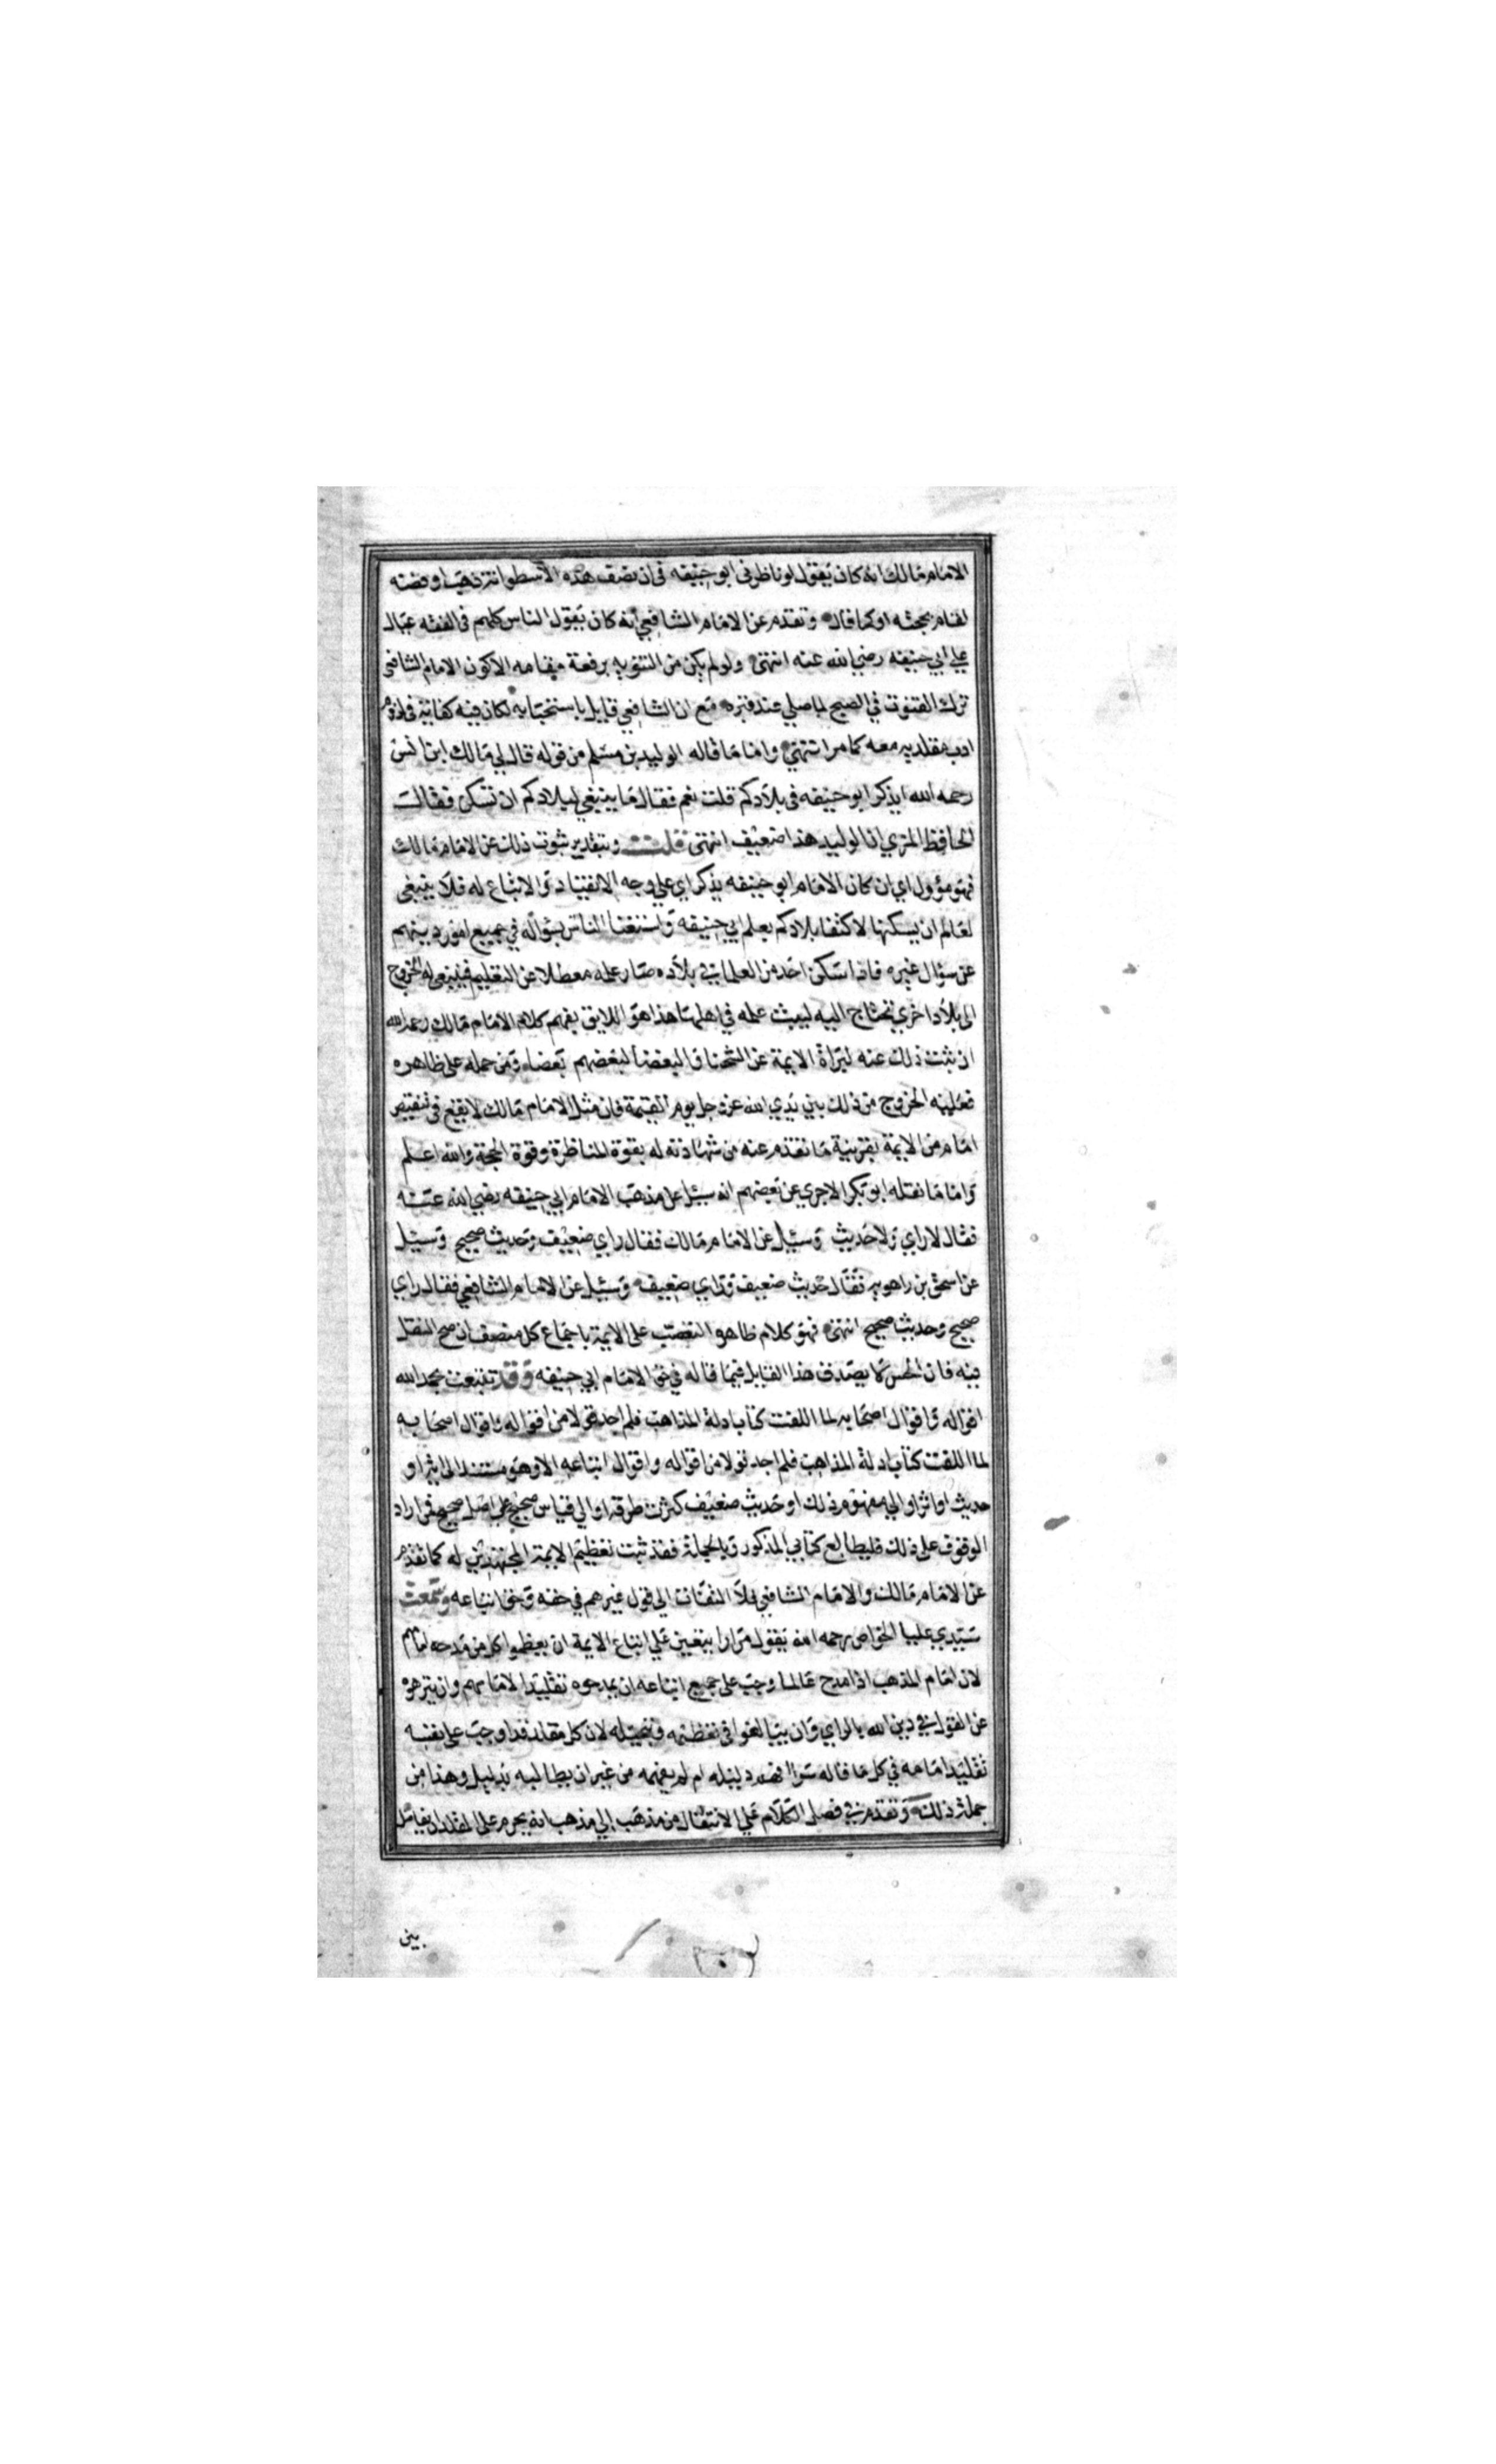 الامام مالك انه كان يقول لو ناظرني ابو حنيفه في ان نصف هذه الاسطوانة ذهب او فضه
لقام بحجته او كما قال وتقدم عن الامام الشافعي انه كان يقول الناس كلهم في الفقه عيال
علي ابي حنيفه رضي الله عنه انتهى ولو لم يكن من التنويه برفعة مقامه الا كون الامام الشافعي
ترك القنوت في الصبح لما صلي عند قبره مع ان الشافعي قايل باستحبابه لكان فيه كفاية في لزوم
ادب مقلديه معه كما مر انتهي واما ما قاله الوليد بن مسلم من قوله قال لي مالك ابن انس
رحمه الله ايذكر ابو حنيفه في بلادكم قلت نعم فقال ما ينبغي لبلادكم ان تسكن فقالت
الحافظ المزي ان الوليد هذا ضعيف انتهى قلت وبتقدير ثبوت ذلك عن الامام مالك
فهو مؤول اي ان كان الامام ابو حنيفه يذكر اي علي وجه الانقياد والاتباع له فلا ينبغي
لعالم ان يسكنها لاكتفا بلادكم بعلم ابي حنيفه واستغنا الناس بسؤاله في جميع امور دينهم
عن سؤال غيره فاذا سكن احد من العلما في بلاده صار علمه معطلا عن التعليم فينبغي له الخروج
الى بلاد اخري تحتاج اليه ليبث علمه في اهلها هذا هو اللايق بفهم كلام الامام مالك رحمه الله
ان ثبت ذلك عنه لبراة الايمة عن الشحنا والبغضا لبعضهم بعضا ومن حمله على ظاهره
فعليه الخروج من ذلك بين يدي الله عز وجل يوم القيمة فان مثل الامام مالك لا يقع في تنقيص
امام من الايمة بقرينة ما تقدم عنه من شهادته له بقوة المناظرة وقوة الحجة والله اعلم
واما ما نقله ابو بكر الاجري عن بعضهم انه سيل عن مذهب الامام ابي حنيفه رضي الله عنه
فقال لا راي ولا حديث وسيل عن الامام مالك فقال راي ضعيف وحديث صحيح وسيل
عن اسحق بن راهويه فقال حديث ضعيف وراي ضعيف وسيل عن الامام الشافعي فقال راي
صحيح وحديث صحيح انتهى فهو كلام ظاهر التعصب على الايمة باجماع كل منصف ان صح النقل
فيه فان الحس لا يصدق هذا القايل فيما قاله في حق الامام ابي حنيفه وقد تتبعت بحمد الله
اقواله واقوال اصحابه لما اللفت كتاب ادلة المذاهب فلم اجد قولا من اقواله واقوال اصحابه
لما اللفت كتاب ادلة المذاهب فلم اجد قولا من اقواله واقوال اتباعه الا وهو مستند الى اية او
حديث او اثر او الي مفهوم ذلك او حديث ضعيف كثرت طرقه او الي قياس صحيح علي اصل صحيح فمن اراد
الوقوف على ذلك فليطالع كتابي المذكور وبالجملة فقد ثبت تعظيم الايمة المجتهدين له كما تقدم
عن الامام مالك والامام الشافعي فلا التفات الي قول غيرهم في حقه وحق اتباعه وسمعت
سيدي عليا الخواص رحمه الله يقول مرارا يتعين علي اتباع الايمة ان يعظموا كل من مدحه امامهم
لان امام المذهب اذا مدح عالما وجب على جميع اتباعه ان يمدحوه تقليدا لامامهم وان ينزهوه
عن القول في دين الله بالراي وان يبالغوا في تعظيمه وتبجيله لان كل مقلد قد اوجب على نفسه
تقليد امامه في كل ما قاله سوا فهم دليله ام لم يفهمه من غير ان يطالبه بدليل وهذا من
جملة ذلك وتقدم في فصل الكلام علي الانتقال من مذهب الي مذهب انه يحرم على المقلد ان يفاضل
بين